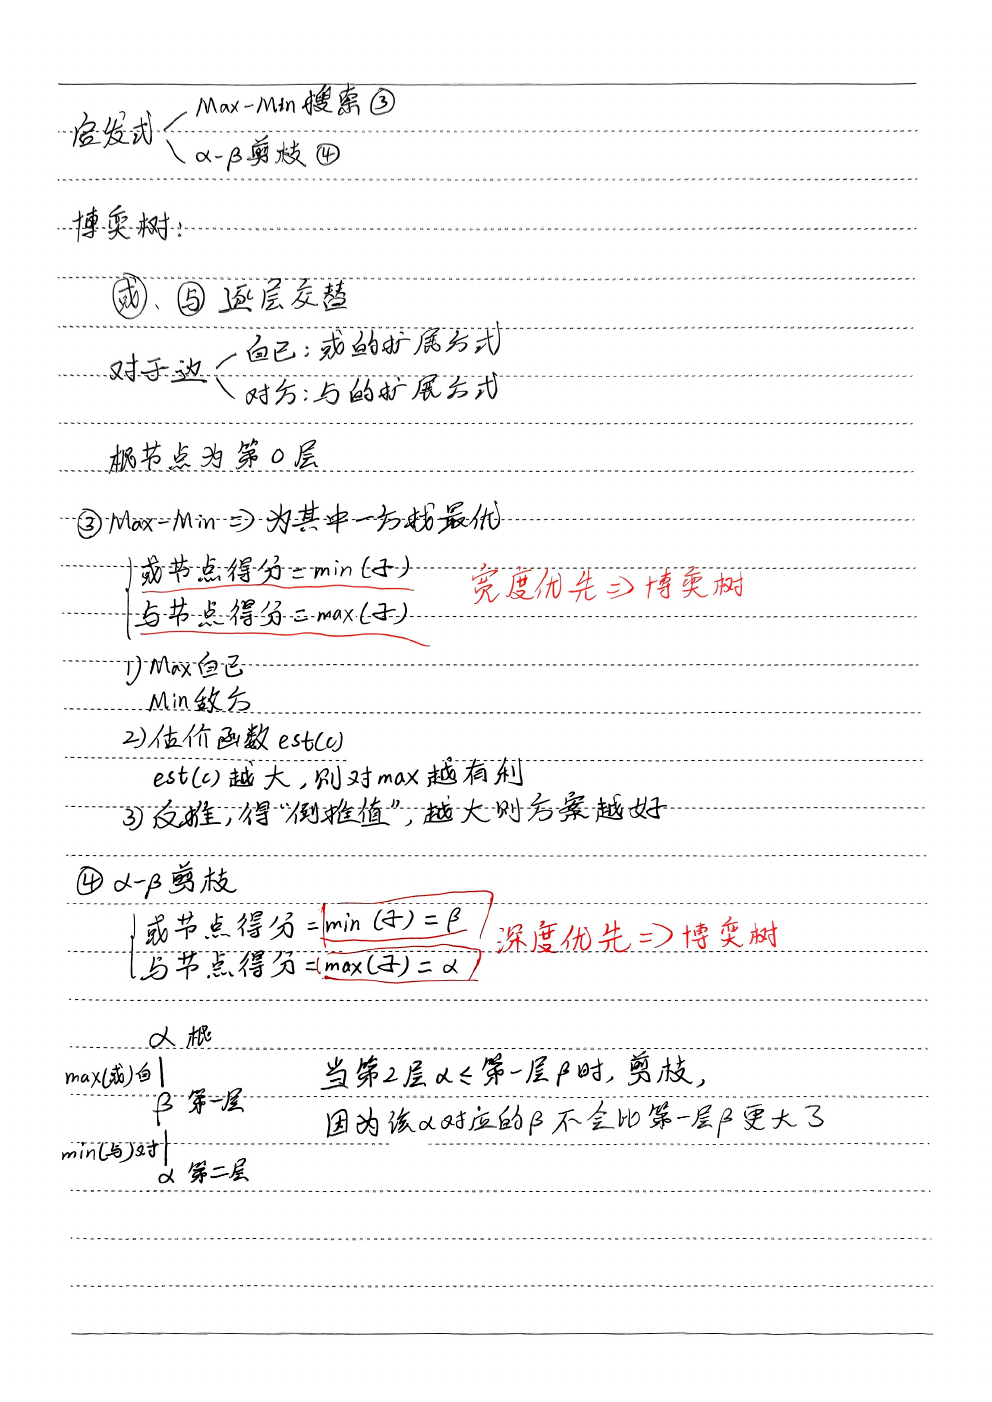 启发式
Max-Min 搜索 ③
α-β 剪枝 ④
博奕树:
或、与 逐层交替
对于边
自己: 或的扩展方式
对方: 与的扩展方式
根节点为第0层
③ Max-Min => 为其中一方找最优
或节点得分=min(子)
与节点得分=max(子)
宽度优先=>博奕树
1) Max自己
Min敌方
2) 估价函数 est(c)
est(c)越大,则对max越有利
3) 反推,得"倒推值",越大则方案越好
④ α-β剪枝
或节点得分=min(子)=β
与节点得分=max(子)=α
深度优先=>博奕树
α 根
max(或)自
β 第一层
min(与)对
α 第二层
当第2层α≤第一层β时,剪枝,
因为该α对应的β不会比第一层β更大了